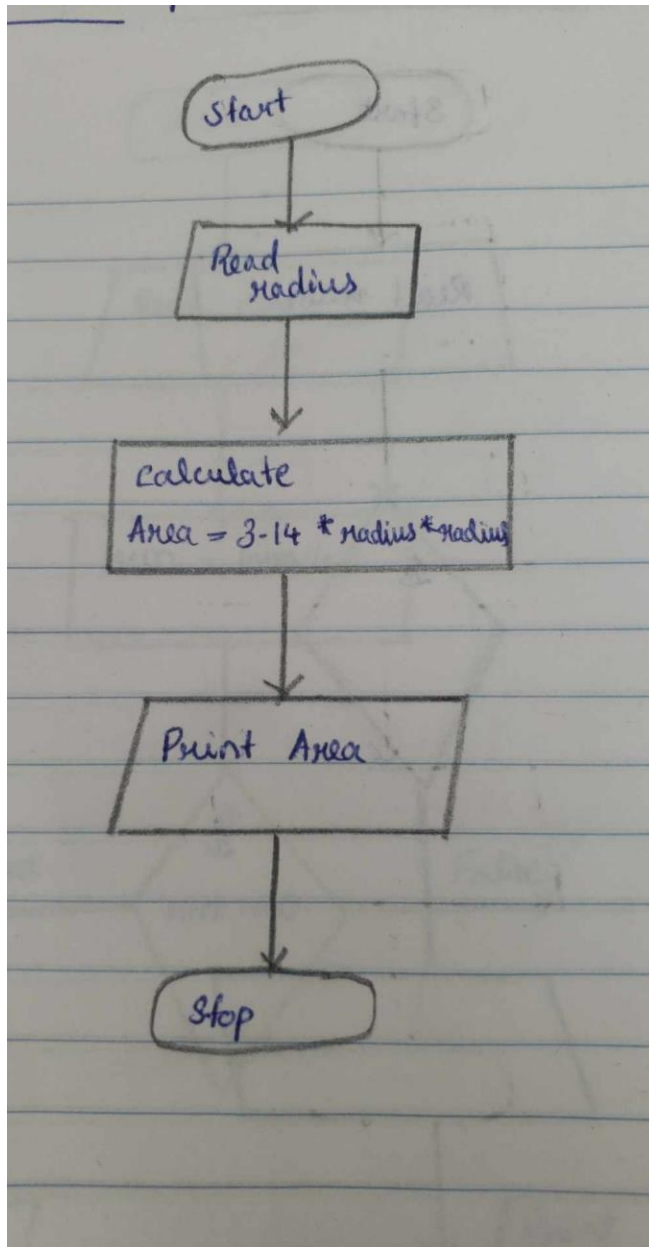 Start
Read
radius
calculate
Area = 3.14 * radius * radius
Print Area
Stop